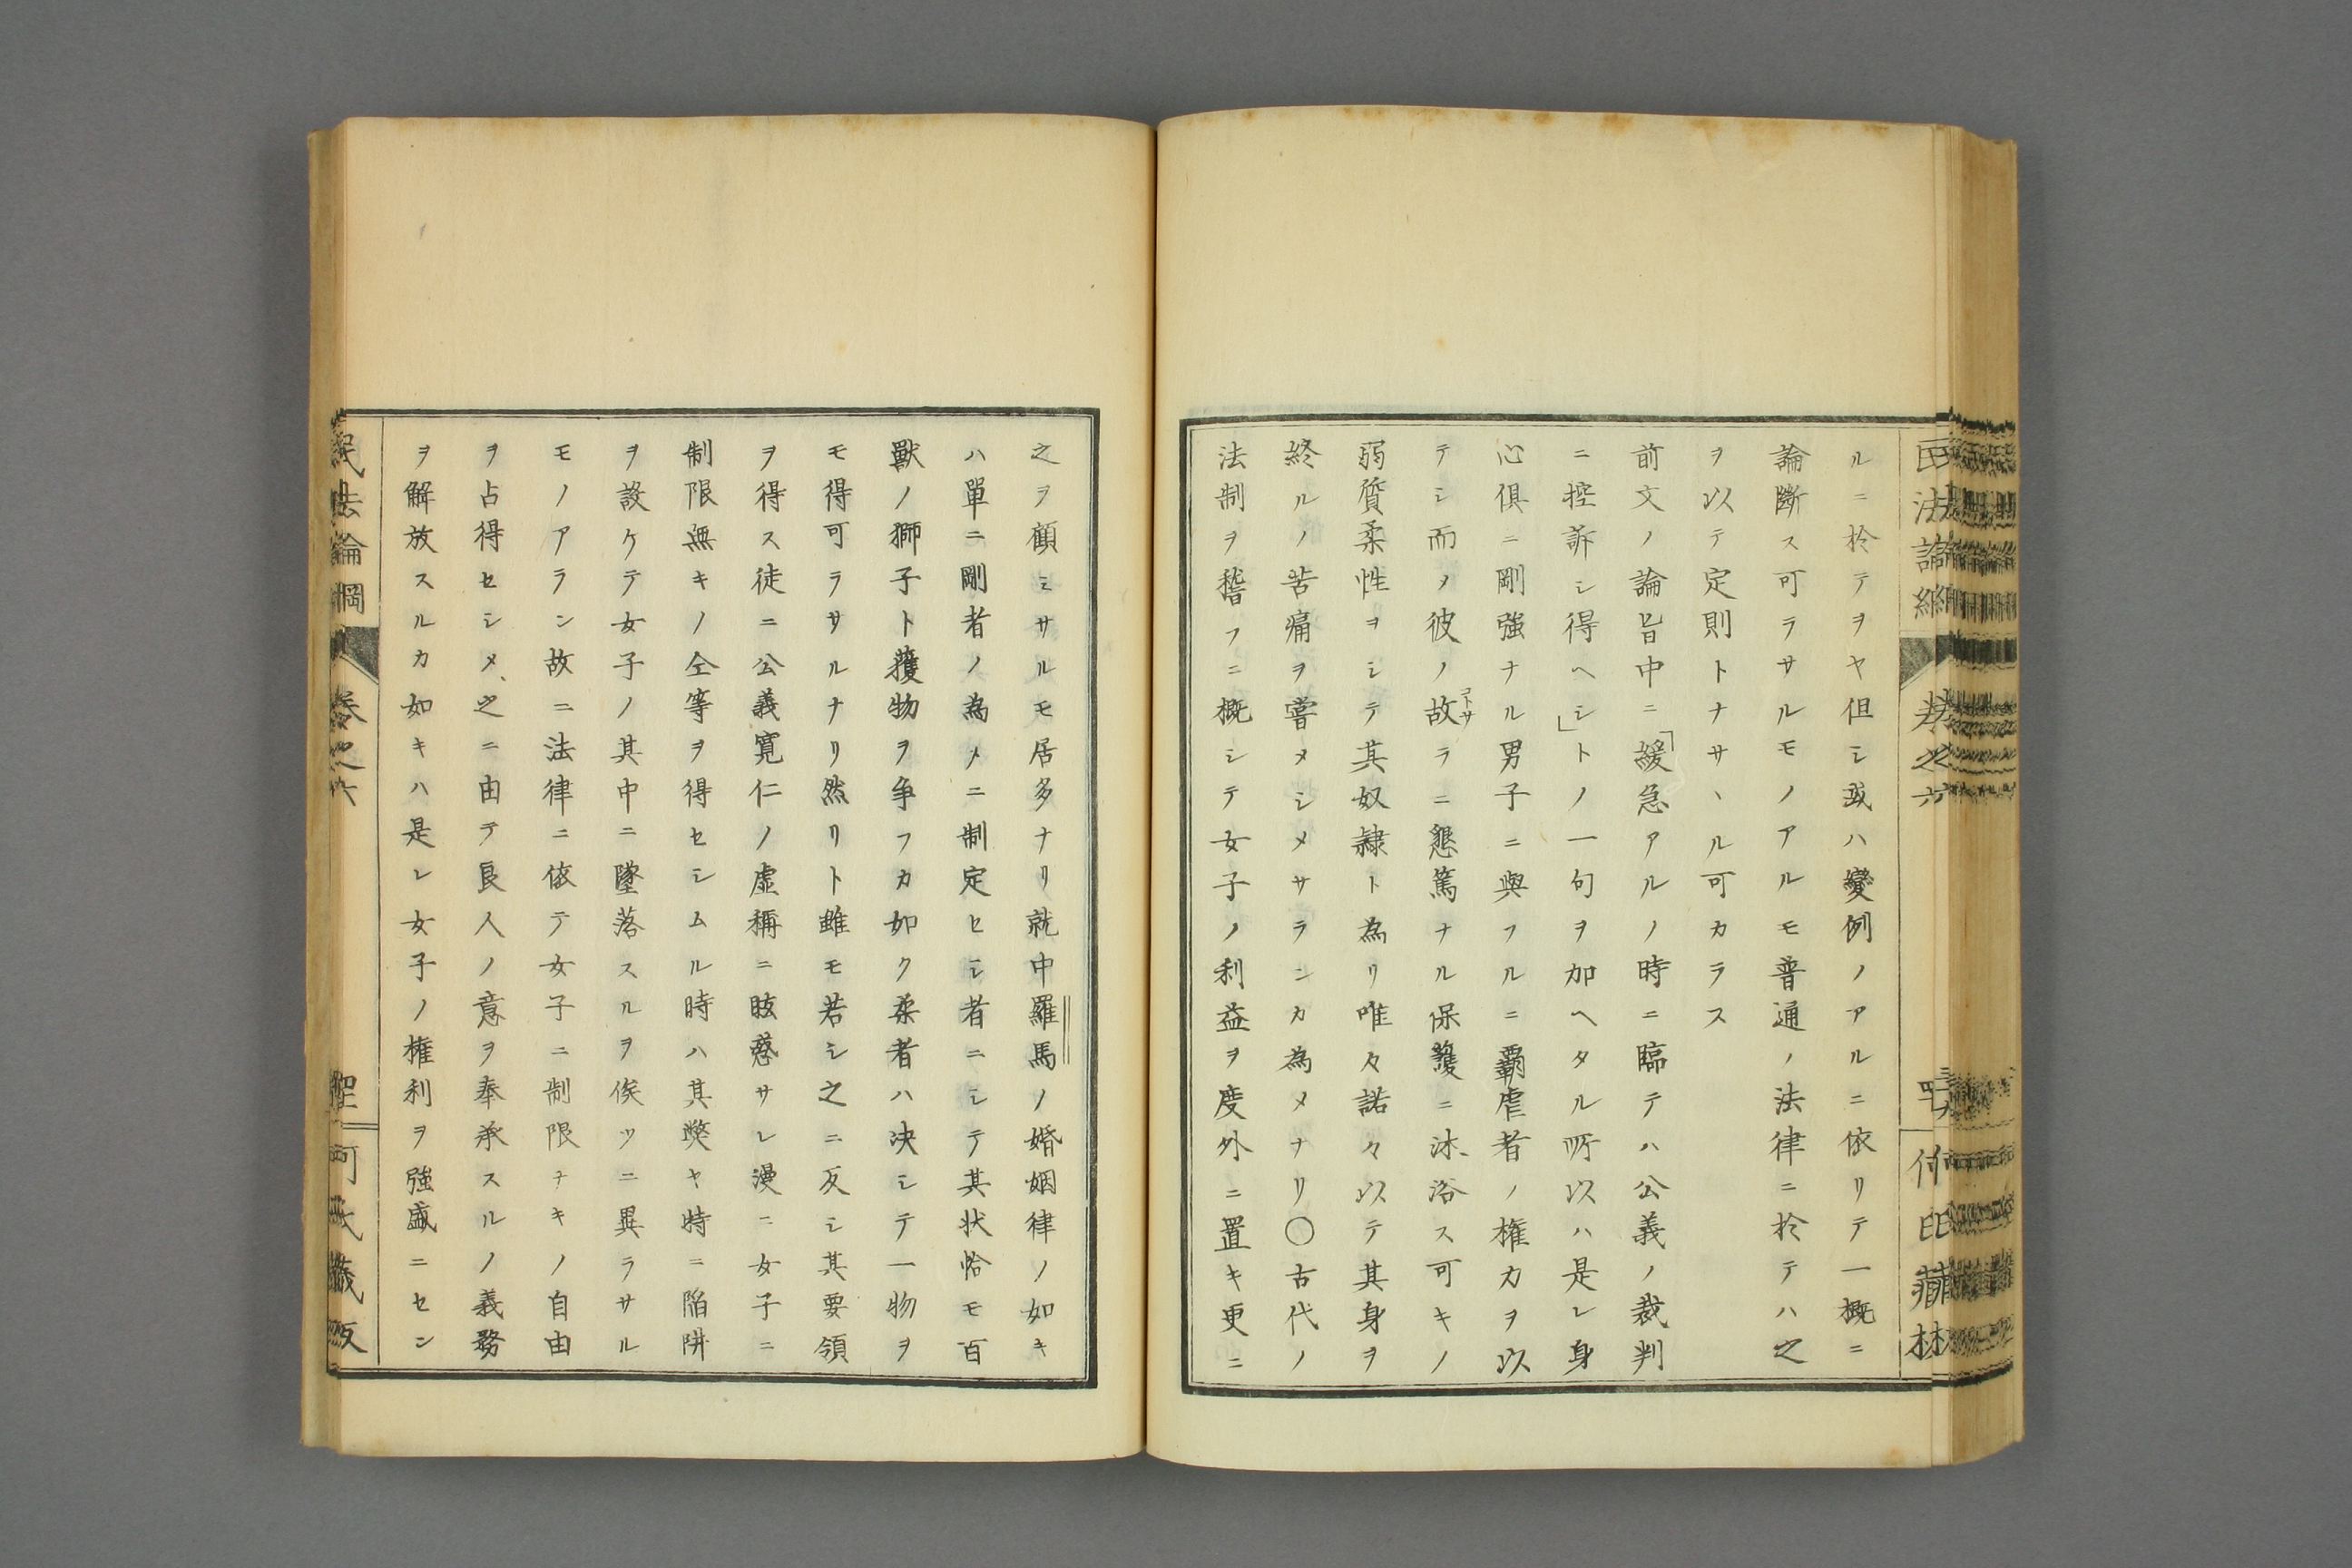 ルニ於テヲヤ但シ或ハ變例ノアルニ依リテ一概ニ
論斷ス可ラサルモノアルモ普通ノ法律ニ於テハ之
ヲ以テ定則トナサヽル可カラス
前文ノ論旨中ニ「緩急アルノ時ニ臨テハ公義ノ裁判
ニ控訴シ得ヘシ」トノ一句ヲ加ヘタル所以ハ是レ身
心俱ニ剛強ナル男子ニ與フルニ覇虐者ノ權力ヲ以
テシ而ノ彼ノ故ラニ懇篤ナル保護ニ沐浴ス可キノ
コトサ
弱質柔性ヲシテ其奴隷ト為リ唯々諾々以テ其身ヲ
終ルノ苦痛ヲ嘗メシメサランカ為メナリ〇古代ノ
法制ヲ稽フニ概シテ女子ノ利益ヲ度外ニ置キ更ニ
之ヲ顧ミサルモ居多ナリ就中羅馬ノ婚姻律ノ如キ
ハ單ニ剛者ノ為メニ制定セシ者ニシテ其状恰モ百
獸ノ獅子ト獲物ヲ争フカ如ク柔者ハ决シテ一物ヲ
モ得可ラサルナリ然リト雖モ若シ之ニ反シ其要領
ヲ得ス徒ニ公義寛仁ノ虚稱ニ眩惑サレ漫ニ女子ニ
制限無キノ仝等ヲ得セシムル時ハ其獘ヤ特ニ陥阱
ヲ設ケテ女子ノ其中ニ墜落スルヲ俟ツニ異ラサル
モノアラン故ニ法律ニ依テ女子ニ制限ナキノ自由
ヲ占得セシメ、之ニ由テ良人ノ意ヲ奉承スルノ義務
ヲ解放スルカ如キハ是レ女子ノ權利ヲ強盛ニセン
民法論綱
卷之六
何氏藏板